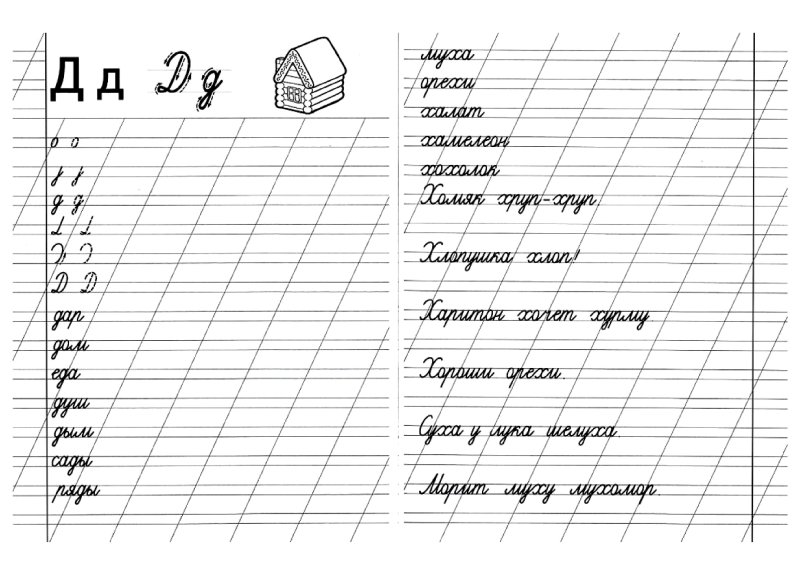 Д д Д д
о о
д д
Д Д
дар
дом
еда
душ
дым
сады
ряды
муха
орехи
халат
хамелеон
хохолок
Хомяк хруп-хруп.
Хлопушка хлоп!
Харитон хочет хурму.
Хороши орехи.
Суха у лука шелуха.
Морит муху мухомор.